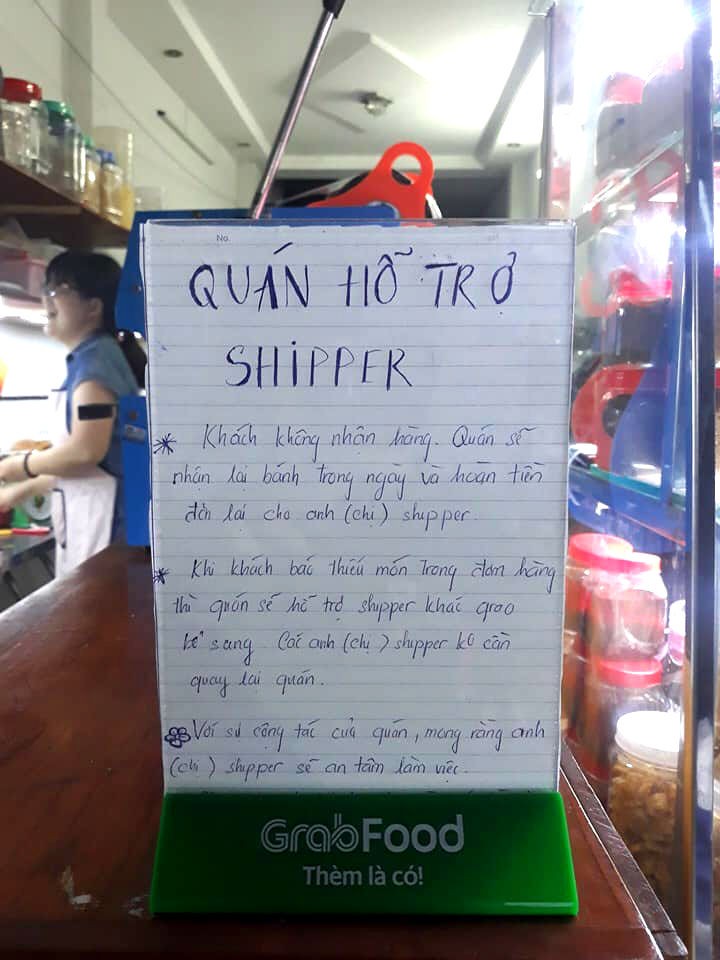 No.
QUÁN HỖ TRỞ
SHIPPER
* Khách không nhận hàng. Quán sẽ
nhận lại bánh trong ngày và hoàn tiền
đơn lại cho anh (chị) shipper.
* Khi khách báo thiếu món trong đơn hàng
thì quán sẽ hỗ trợ shipper khác giao
bổ sang. Các anh (chị) shipper ko cần
quay lại quán.
Với sự cộng tác của quán, mong rằng anh
(chị) shipper sẽ an tâm làm việc.
GrabFood
Thèm là có!